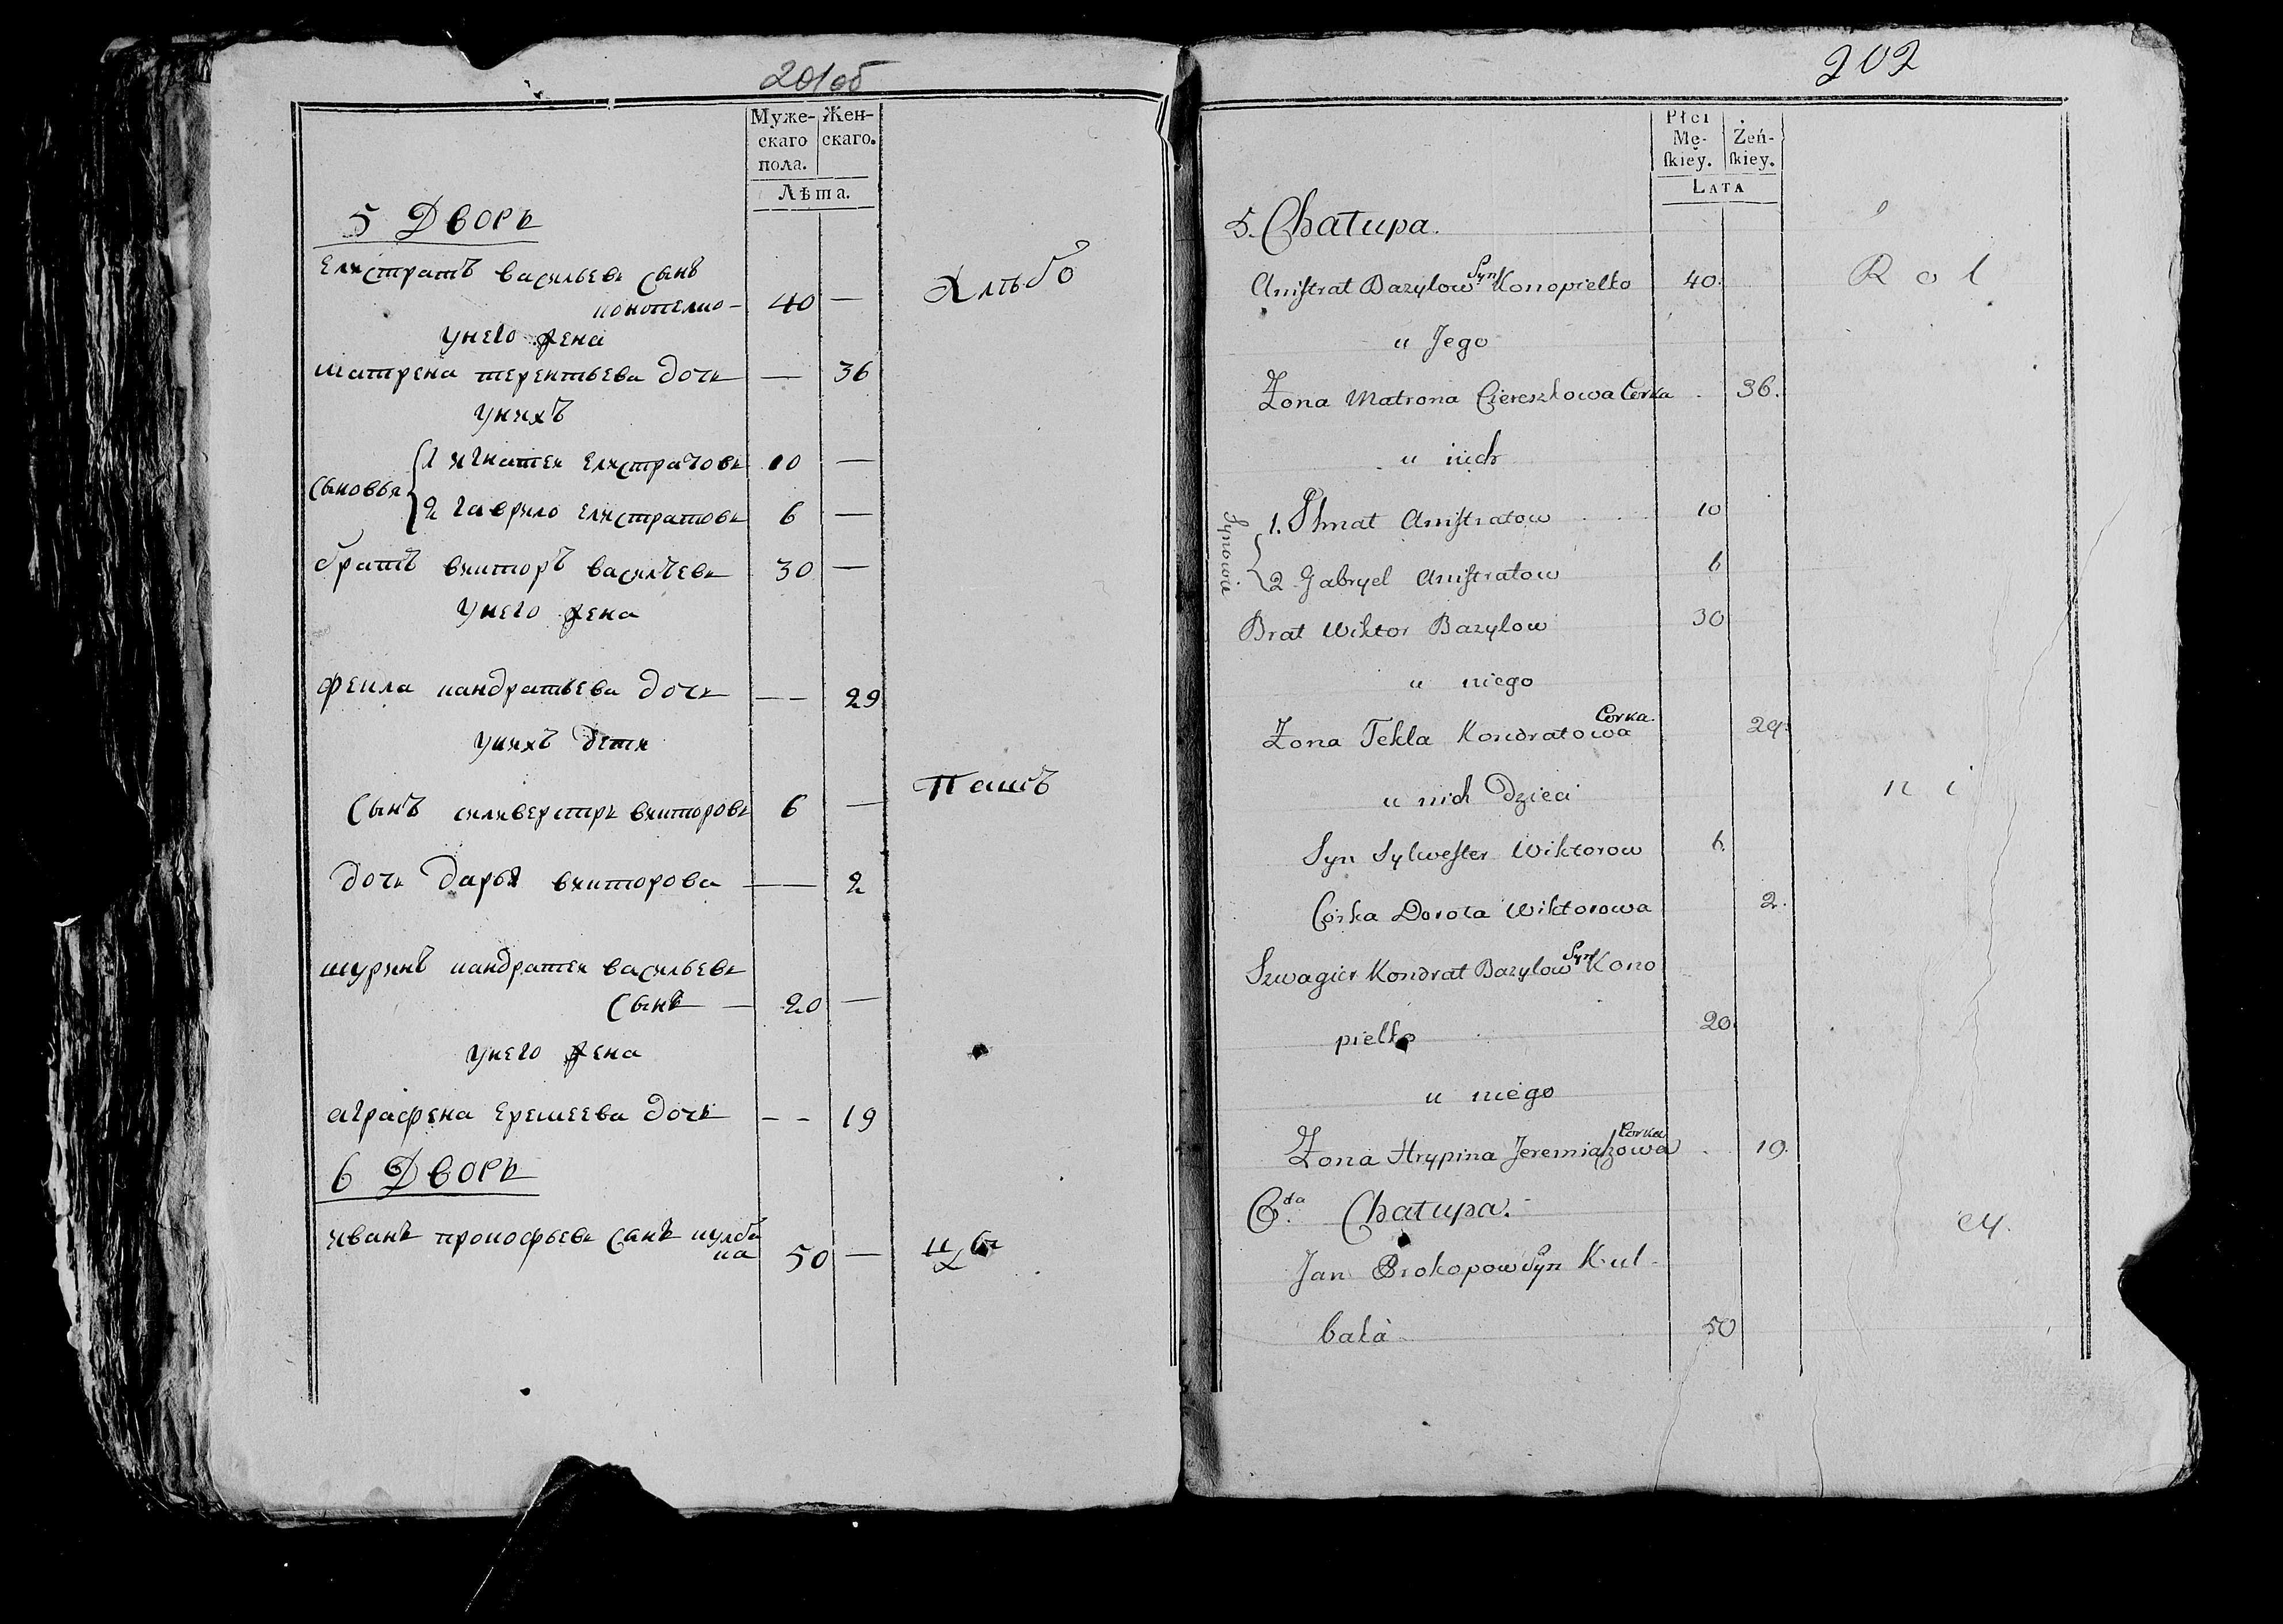 201об
Муже-
скаго
пола.
Жен-
скаго.
Лѣта.
5 Дворъ
Елистратъ васильевъ сынъ
конопелко - 40 —
Хлѣбо
унего жена
матрена терентьева дочь — 36
унихъ
сыновья
1 игнатеи Елистратовъ 10 —
2 гаврило Елистратовъ 6 —
братъ викторъ васильевъ 30 —
унего жена
фекла кандратьева дочь — — 29
унихъ дети
сынъ силиверстръ викторовъ 6 —
Пашъ
дочь дарья викторова — — 2
шуринъ кандратеи васильевъ
сынъ — 20 —
унего жена
аграфена Еремеева дочь — — 19
6 Дворъ
иванъ прокофьевъ сынъ кулба
ка 50 —
202
Płci
Mę-
ſkiey.
Żeń-
ſkiey.
LATA
5. Chałupa.
Aniſtrat Bazylow Syn Konopielko 40.
R o l
u Jego
Żona Matrona Ciereszkowa Corka . 36.
u nich
Synowie.
1. Ihnat Aniſtratow 10
2 Gabryel Aniſtratow 6
Brat Wiktor Bazylow 30
u niego
Żona Tekla Kondratowa Corka. 29.
u nich Dzieci
n i
Syn Sylweſter Wiktorow 6.
Córka Dorota Wiktorowa 2.
Szwagier Kondrat Bazylow Syn Kono
pielko 20
u niego
Żona Hrypina Jeremiaszowa Corka . 19.
6.ta Chałupa.
cy.
Jan Prokopow Syn Kul-
baka 50